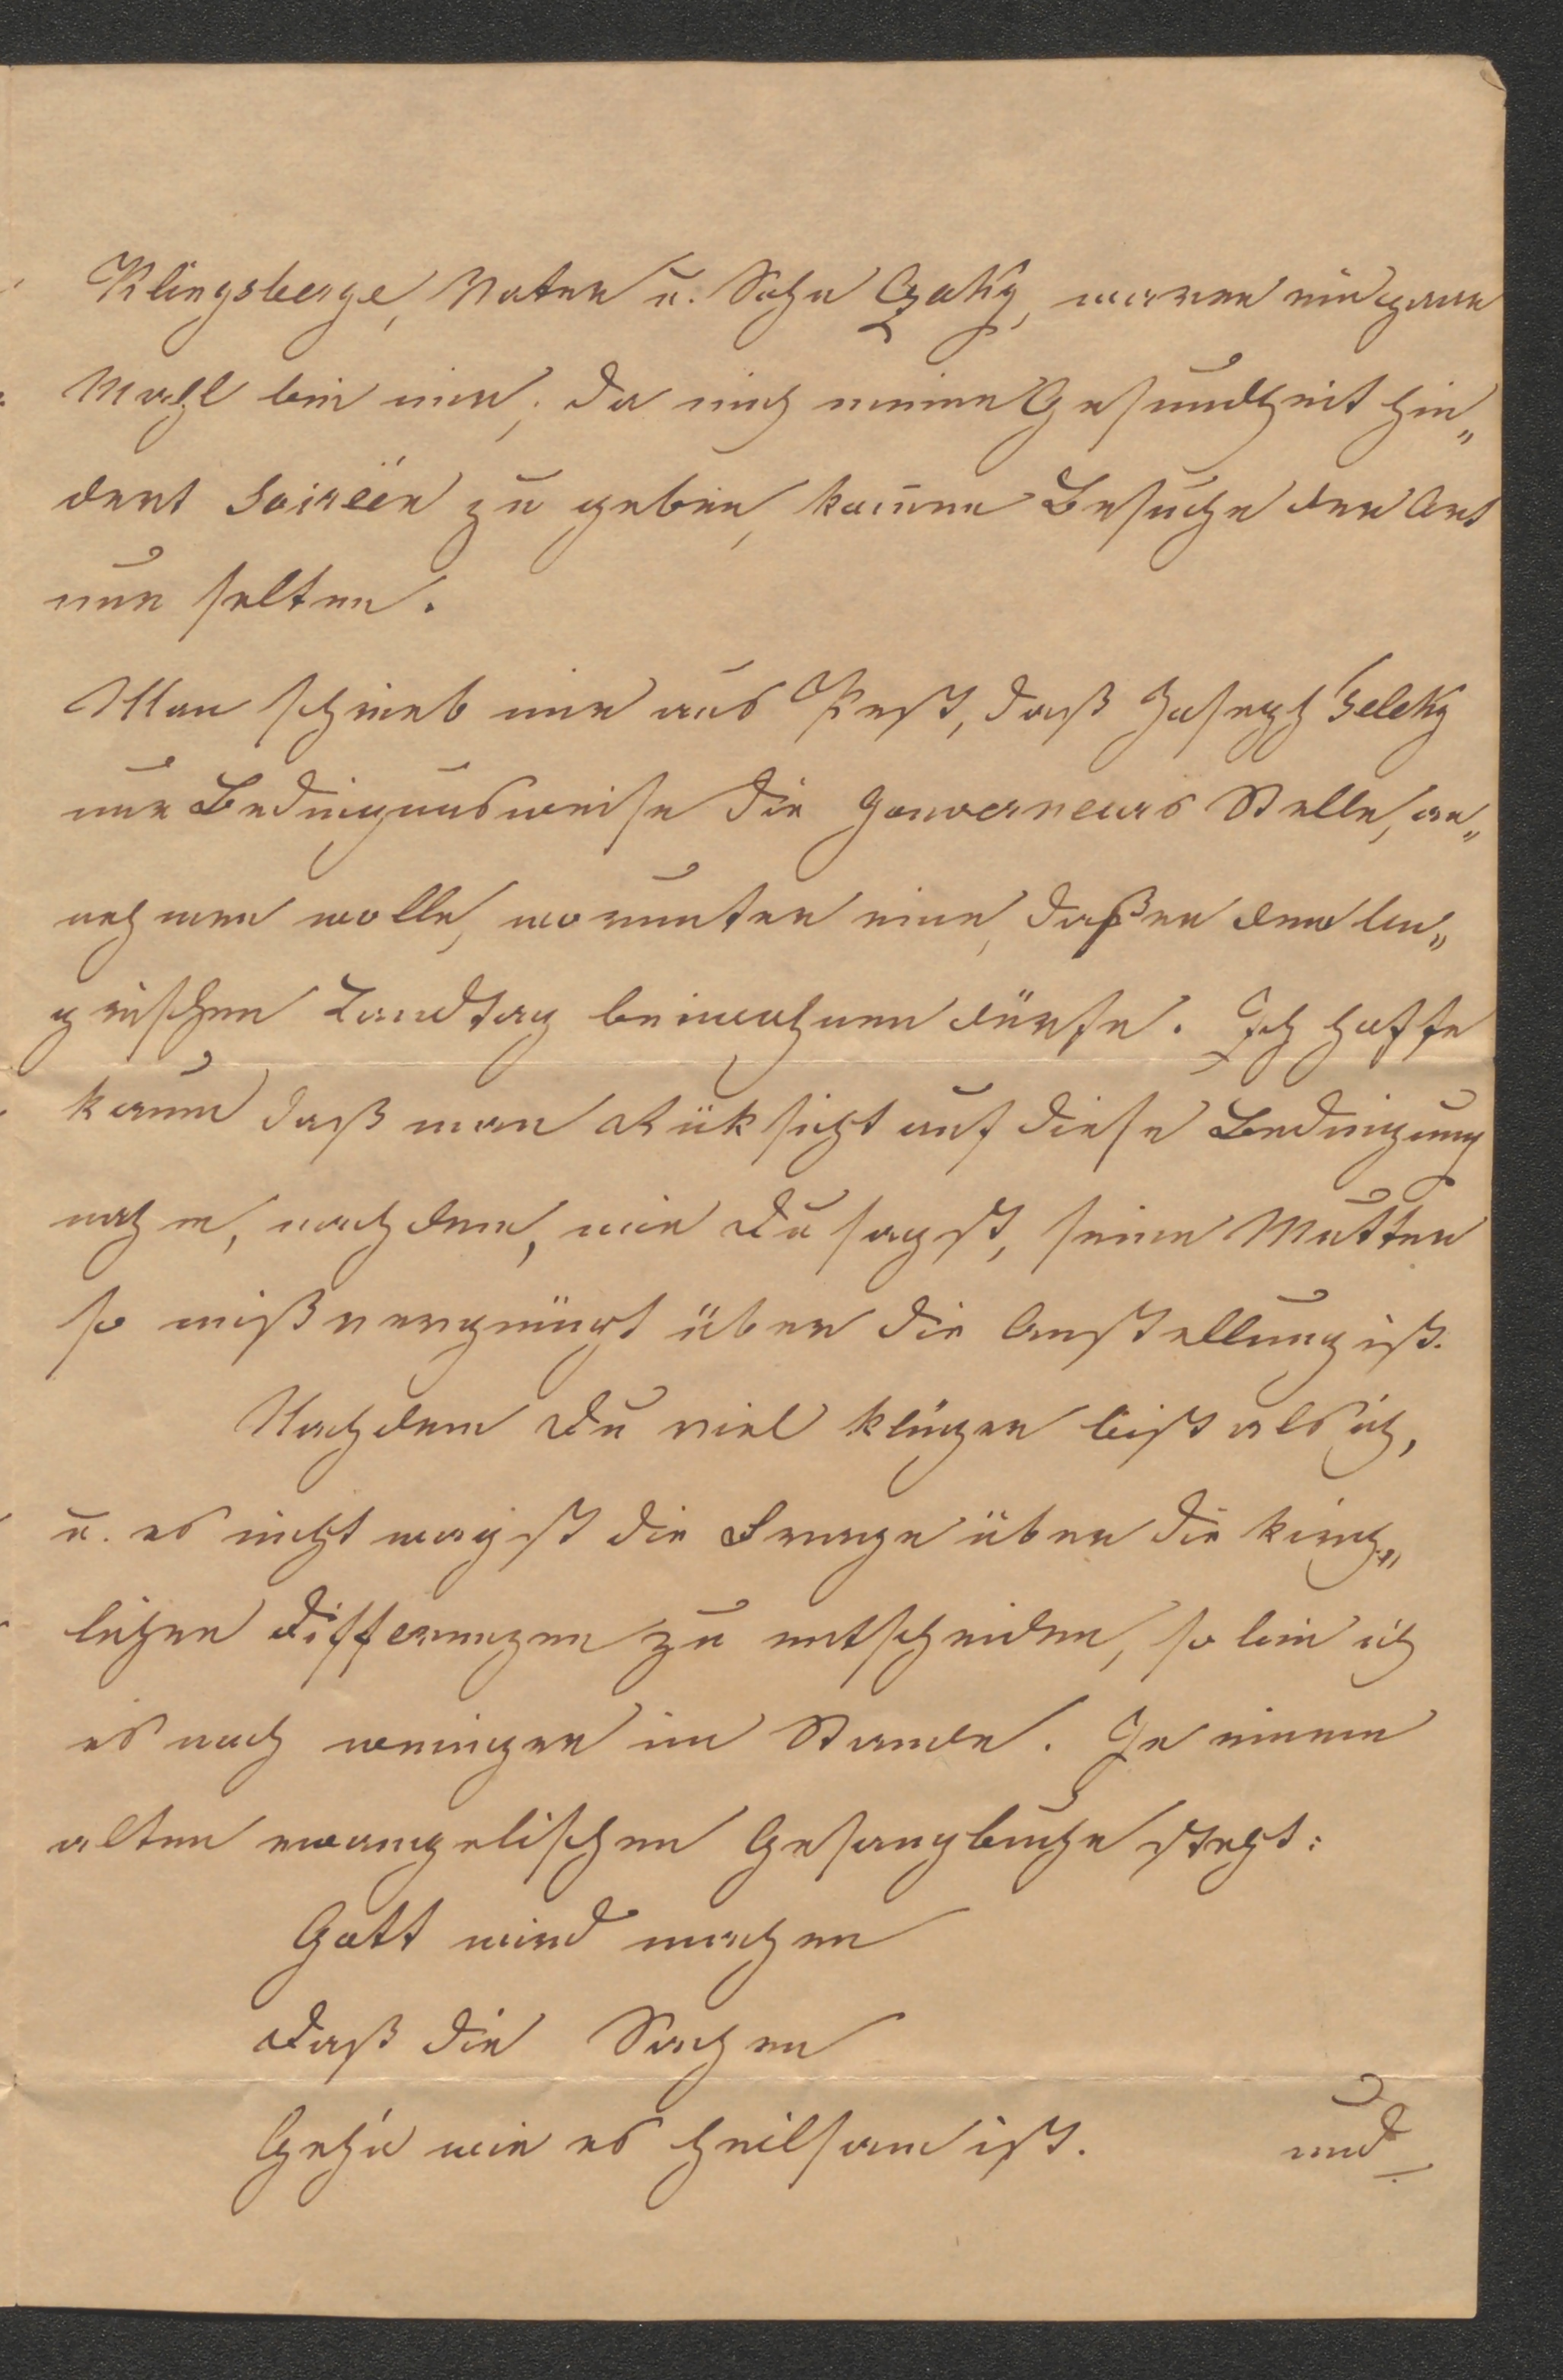 Klingsberge, Vater u. Sohn Czaky, waren ein paar
Mahl bei mir; da mich meine Gesundheit hin„
dert Soiréen zu geben, kom̅en Besuche der Art
nur selten.
Man schrieb mir aus Pest, daß Joseph Teleky
nur Bedingungsweise die Gouverneurs Stelle, an„
nehmen wolle, worunter eine, daß er dem Un„
grischen Landtag beiwohnen dürfe. Ich hoffe
kaum daß man Rüksicht auf diese Bedingung
nahm, nachdem, wie Du sagst, seine Mutter
so mißvergnügt über die Anstellung ist.
Nachdem Du viel klüger bist als ich,
u. es nicht wagst die Frage über die kirch„
lichen Differenzen zu entscheiden, so bin ich
es noch weniger im Stande. In einem
alten evangelischen Gesangbuche steht:
Gott wird machen
Daß die Sachen
Geh'n wie es heilsam ist.
und